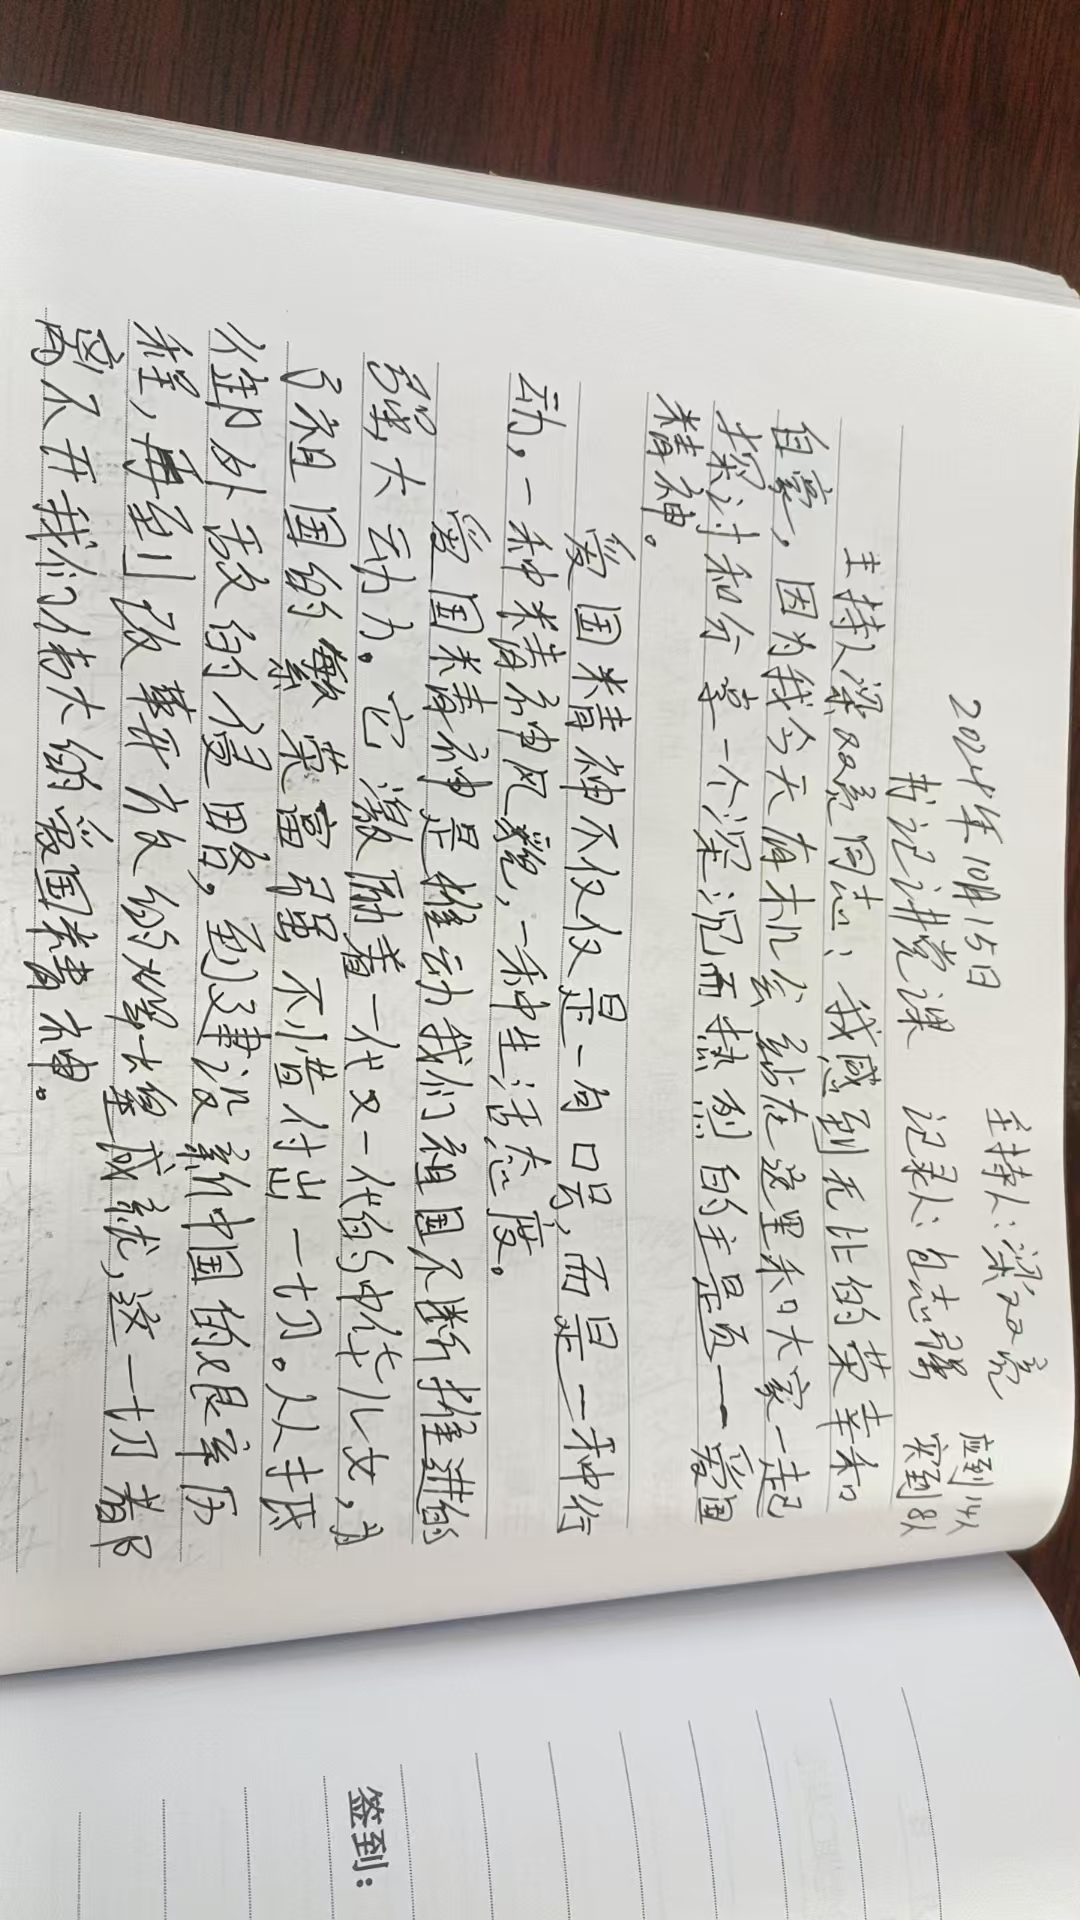 2024年10月15日 主持人：梁双亮 应到14人
书记讲党课 记录人：白志强 实到8人
主持人梁双亮同志：我感到无比的荣幸和
自豪，因为我今天有机会站在这里和大家一起
探讨和分享一个深沉而热烈的主题一爱国
精神。
爱国精神不仅仅是一句口号，而是一种行
动，一种精神风貌，一种生活态度。
爱国精神是推动我们祖国不断推进的
强大动力。它激励着一代又一代的中华儿女，为
了祖国的繁荣富强不惜付出一切。从抵
御外敌的侵略，到建设新中国的艰辛历
程，再到改革开放的伟大建成就，这一切都
离不开我们伟大的爱国精神。
签到：